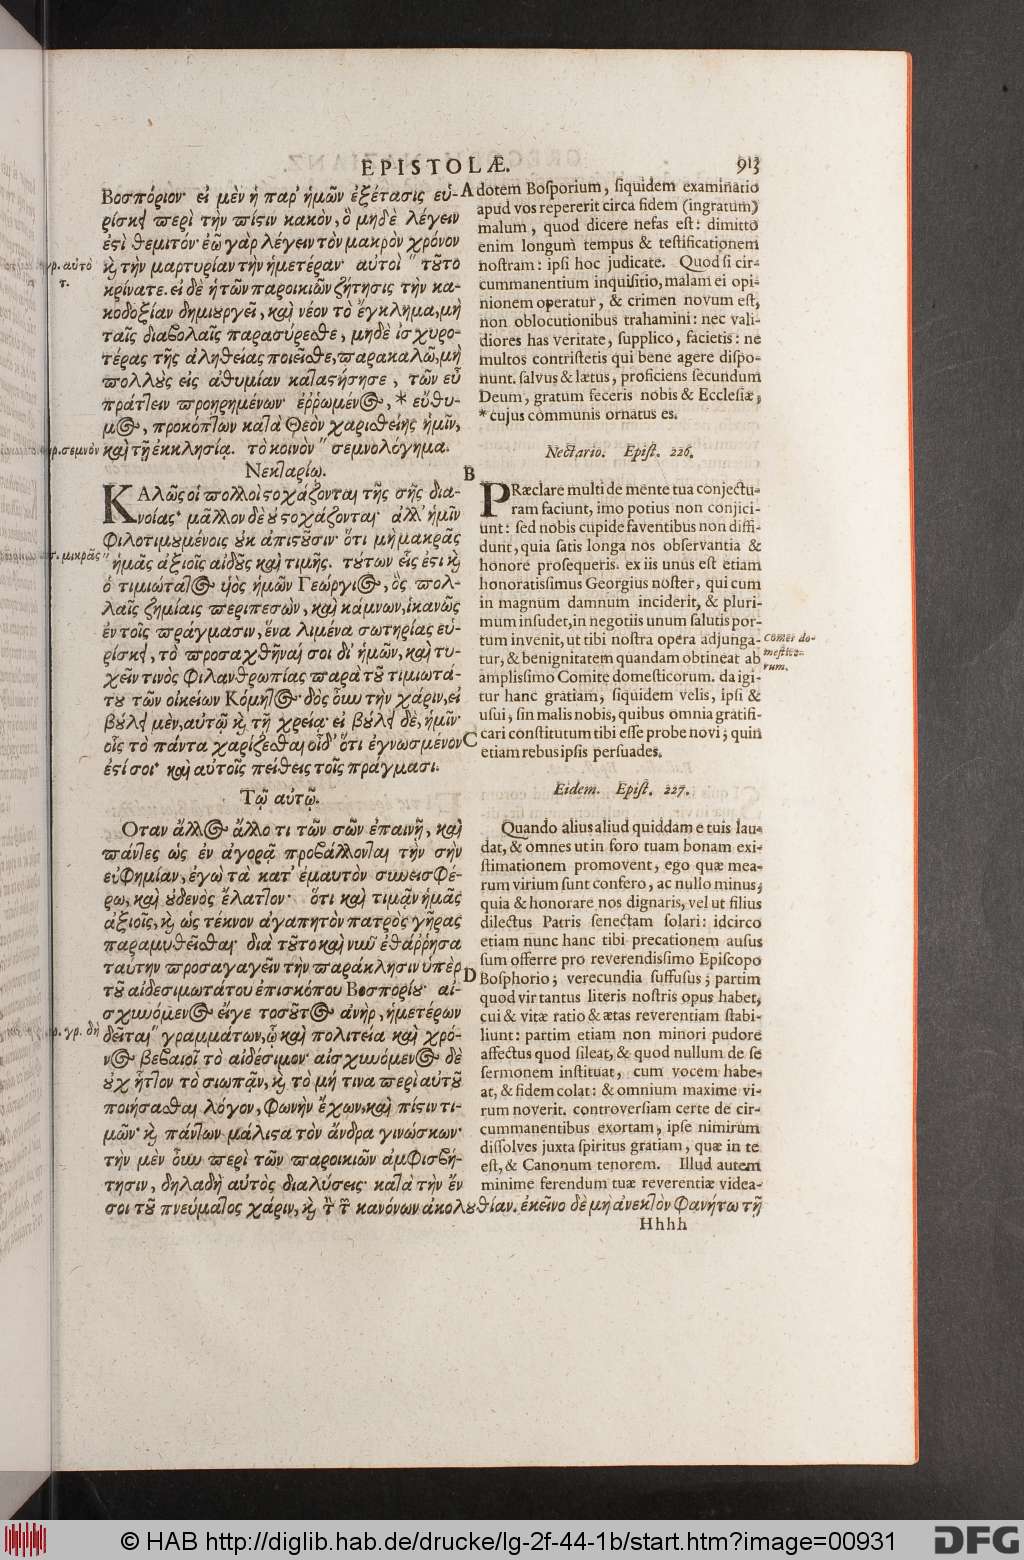 EPISTOLÆ.
913
Βοσπόριον· εἰ μὲν ἡ παρ' ἡμῶν ἐξέτασις εὑ-
ρίσκει περὶ τὴν πίστιν κακὸν, ὃ μηδὲ λέγειν
ἐστὶ θεμιτόν· ἐῶ γὰρ λέγειν τὸν μακρὸν χρόνον
καὶ τὴν μαρτυρίαν τὴν ἡμετέραν· αὐτοὶ " τοῦτο
κρίνατε. εἰ δὲ ἡ τῶν παροικιῶν ζήτησις τὴν κα-
κοδοξίαν δημιουργεῖ, καὶ νέον τὸ ἔγκλημα, μὴ
ταῖς διαβολαῖς παρασύρεσθε, μηδὲ ἰσχυρο-
τέρας τῆς ἀληθείας ποιεῖσθε, παρακαλῶ, μὴ
πολλοὺς εἰς ἀθυμίαν καταστήσητε, τῶν εὖ
πράττειν προῃρημένων· ἐῤῥωμένος, * εὔθυ-
μος, προκόπτων κατὰ Θεὸν χαρισθείης ἡμῖν,
καὶ τῇ ἐκκλησίᾳ. τὸ κοινὸν " σεμνολόγημα.
Νεκταρίω.
ΚΑλῶς οἱ πολλοὶ στοχάζονται τῆς σῆς δια-
νοίας· μᾶλλον δὲ οὐ στοχάζονται· ἀλλ' ἡμῖν
φιλοτιμουμένοις οὐκ ἀπιστοῦσιν· ὅτι μὴ μακρᾶς
" ἡμᾶς ἀξιοῖς αἰδοῦς καὶ τιμῆς. τούτων εἷς ἐστι καὶ
ὁ τιμιώτατος υἱὸς ἡμῶν Γεώργιος, ὃς πολ-
λαῖς ζημίαις περιπεσὼν, καὶ κάμνων, ἱκανῶς
ἐν τοῖς πράγμασιν, ἕνα λιμένα σωτηρίας εὑ-
ρίσκει, τὸ προσαχθῆναί σοι δι' ἡμῶν, καὶ τυ-
χεῖν τινὸς φιλανθρωπίας παρὰ τοῦ τιμιωτά-
του τῶν οἰκείων Κόμητος· δὸς οὖν τὴν χάριν, εἰ
βούλει μὲν, αὐτῷ καὶ τῇ χρείᾳ· εἰ βούλει δὲ, ἡμῖν·
οἷς τὸ πάντα χαρίζεσθαι οἶδ' ὅτι ἐγνωσμένον
ἐστί σοι· καὶ αὐτοῖς πείθεις τοῖς πράγμασι.
Τῷ αὐτῷ.
Οταν ἄλλος ἄλλο τι τῶν σῶν ἐπαινῇ, καὶ
πάντες ὡς ἐν ἀγορᾷ προβάλλονται τὴν σὴν
εὐφημίαν, ἐγὼ τὰ κατ' ἐμαυτὸν συνεισφέ-
ρω, καὶ οὐδενὸς ἔλαττον· ὅτι καὶ τιμᾷν ἡμᾶς
ἀξιοῖς, καὶ ὡς τέκνον ἀγαπητὸν πατρὸς γῆρας
παραμυθεῖσθαι· διὰ τοῦτο καὶ νῦν ἐθάῤῥησα
ταύτην προσαγαγεῖν τὴν παράκλησιν ὑπὲρ
τοῦ αἰδεσιμωτάτου ἐπισκόπου Βοσπορίου· αἰ-
σχυνόμενος εἴγε τοσοῦτος ἀνὴρ, ἡμετέρων
δεῖται " γραμμάτων, ᾧ καὶ πολιτεία καὶ χρό-
νος βεβαιοῖ τὸ αἰδέσιμον· αἰσχυνόμενος δὲ
οὐχ ἧττον τὸ σιωπᾷν, καὶ τὸ μή τινα περὶ αὐτοῦ
ποιήσασθαι λόγον, φωνὴν ἔχων, καὶ πίστιν τι-
μῶν· καὶ πάντων μάλιστα τὸν ἄνδρα γινώσκων·
τὴν μὲν οὖν περὶ τῶν παροικιῶν ἀμφισβή-
τησιν, δηλαδὴ αὐτὸς διαλύσεις· κατὰ τὴν ἔν
σοι τοῦ πνεύματος χάριν, καὶ τὴν τῶν κανόνων ἀκολουθίαν. ἐκεῖνο δὲ μὴ ἀνεκτὸν φανήτω τῇ
γρ. αὐτὸ
τ.
γρ. σεμνὸν
γρ. μικρᾶς
γρ. δὴ
A dotem Bosporium, siquidem examinatio
apud vos repererit circa fidem (ingratum)
malum, quod dicere nefas est: dimitto
enim longum tempus & testificationem
nostram: ipsi hoc judicate. Quod si cir-
cummanentium inquisitio, malam ei opi-
nionem operatur, & crimen novum est,
non oblocutionibus trahamini: nec vali-
diores has veritate, supplico, facietis: ne
multos contristetis qui bene agere dispo-
nunt. salvus & lætus, proficiens secundum
Deum, gratum feceris nobis & Ecclesiæ,
* cujus communis ornatus es.
Nectario. Epist. 226.
B
PRæclare multi de mente tua conjectu-
ram faciunt, imo potius non conjici-
unt: sed nobis cupide faventibus non diffi-
dunt, quia satis longa nos observantia &
honore prosequeris. ex iis unus est etiam
honoratissimus Georgius noster, qui cum
in magnum damnum inciderit, & pluri-
mum insudet, in negotiis unum salutis por-
tum invenit, ut tibi nostra opera adjunga-
tur, & benignitatem quandam obtineat ab
amplissimo Comite domesticorum. da igi-
tur hanc gratiam, siquidem velis, ipsi &
usui, sin malis nobis, quibus omnia gratifi-
C cari constitutum tibi esse probe novi; quin
etiam rebus ipsis persuades.
Comes do-
mestico-
rum.
Eidem. Epist. 227.
Quando alius aliud quiddam e tuis lau-
dat, & omnes ut in foro tuam bonam exi-
stimationem promovent, ego quæ mea-
rum virium sunt confero, ac nullo minus,
quia & honorare nos dignaris, vel ut filius
dilectus Patris senectam solari: idcirco
etiam nunc hanc tibi precationem ausus
sum offerre pro reverendissimo Episcopo
D Bosphorio; verecundia suffusus; partim
quod vir tantus literis nostris opus habet,
cui & vitæ ratio & ætas reverentiam stabi-
liunt: partim etiam non minori pudore
affectus quod sileat, & quod nullum de se
sermonem instituat, cum vocem habe-
at, & fidem colat: & omnium maxime vi-
rum noverit. controversiam certe de cir-
cummanentibus exortam, ipse nimirum
dissolves juxta spiritus gratiam, quæ in te
est, & Canonum tenorem. Illud autem
minime ferendum tuæ reverentiæ videa-
Hhhh
© HAB http://diglib.hab.de/drucke/lg-2f-44-1b/start.htm?image=00931
DFG